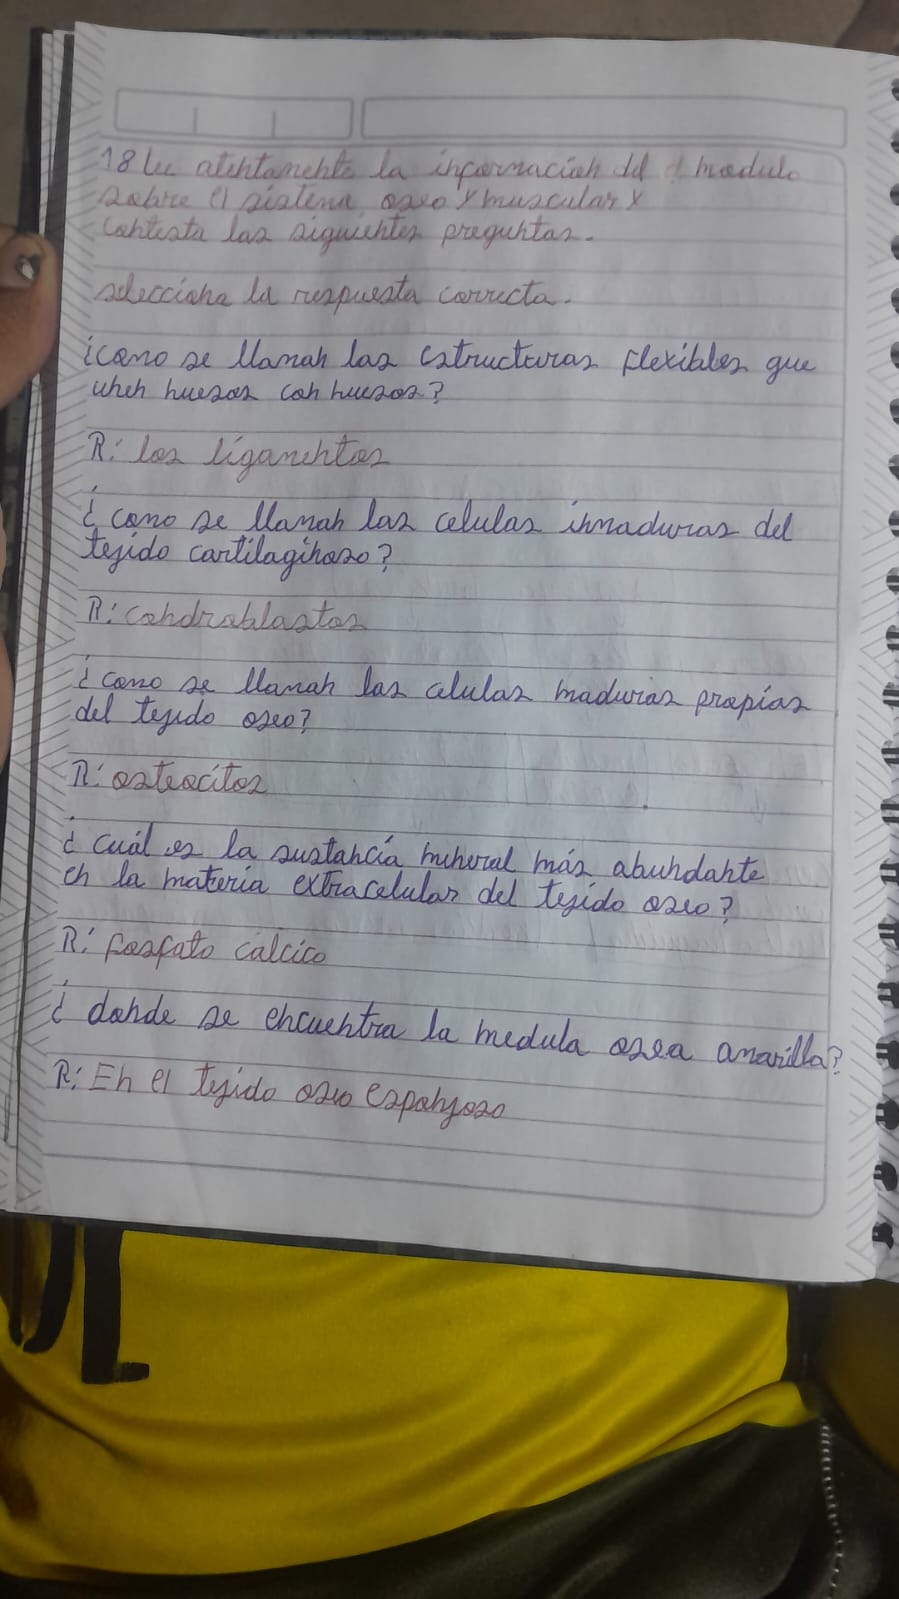 18 lee atentamente la información del d modulo
sobre el sistema oseo y muscular y
contesta las siguientes preguntas.
selecciona la respuesta correcta.
¿como se llaman las estructuras flexibles que
unen huesos con huesos?
R: los ligamentos
¿como se llaman las celulas inmaduras del
tejido cartilaginoso?
R: condroblastos
¿como se llaman las celulas maduras propias
del tejido oseo?
R: osteocitos
¿cuál es la sustancia mineral más abundante
en la materia extracelular del tejido oseo?
R: fosfato calcico
¿donde se encuentra la medula osea amarilla?
R: En el tejido oseo esponjoso